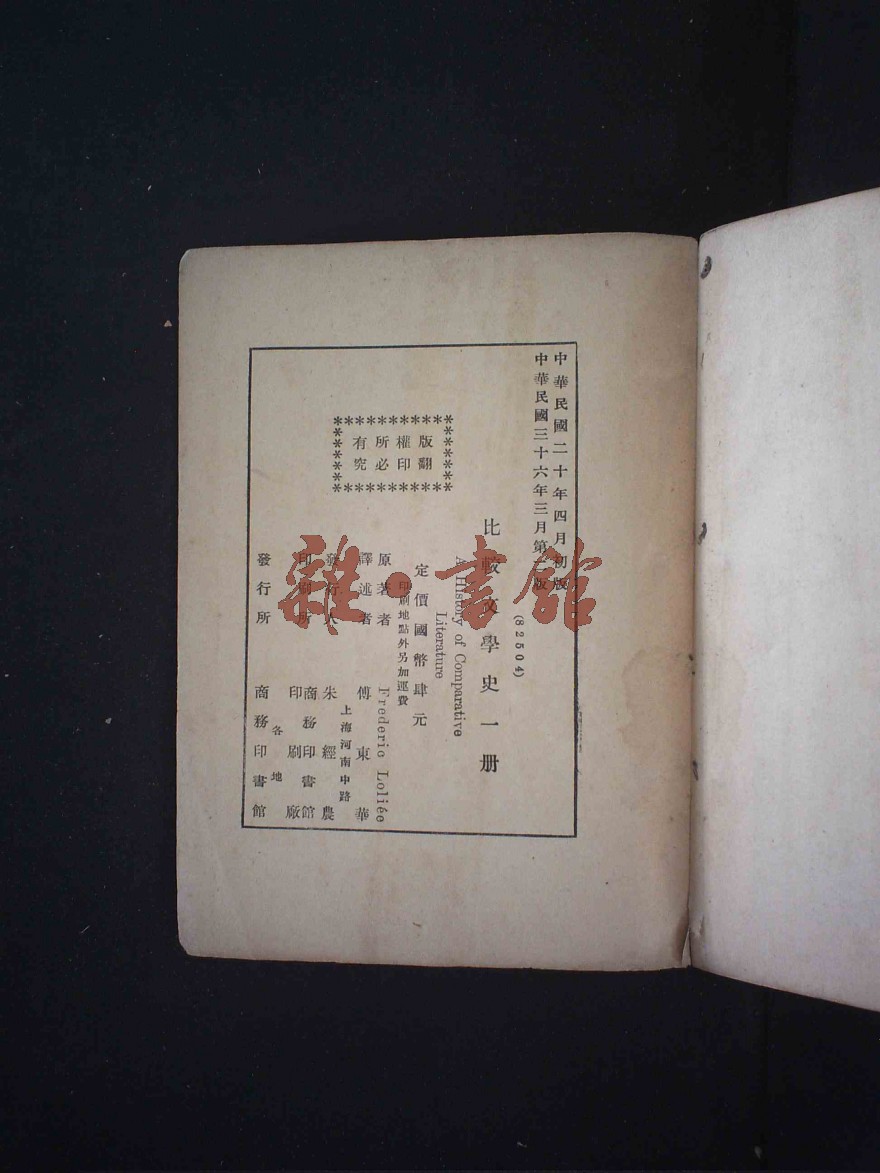 中華民國二十年四月初版
中華民國三十六年三月第二版
(82504)
比較文學史一册
A History of Comparative
Literature
定價國幣肆元
印刷地點外另加運費
版權所有
翻印必究
原著者 Frederic Loliée
譯述者 傅東華
上海河南中路
發行人 朱經農
印刷所 商務印書館
印刷廠
發行所 各地
商務印書館
雜·書館